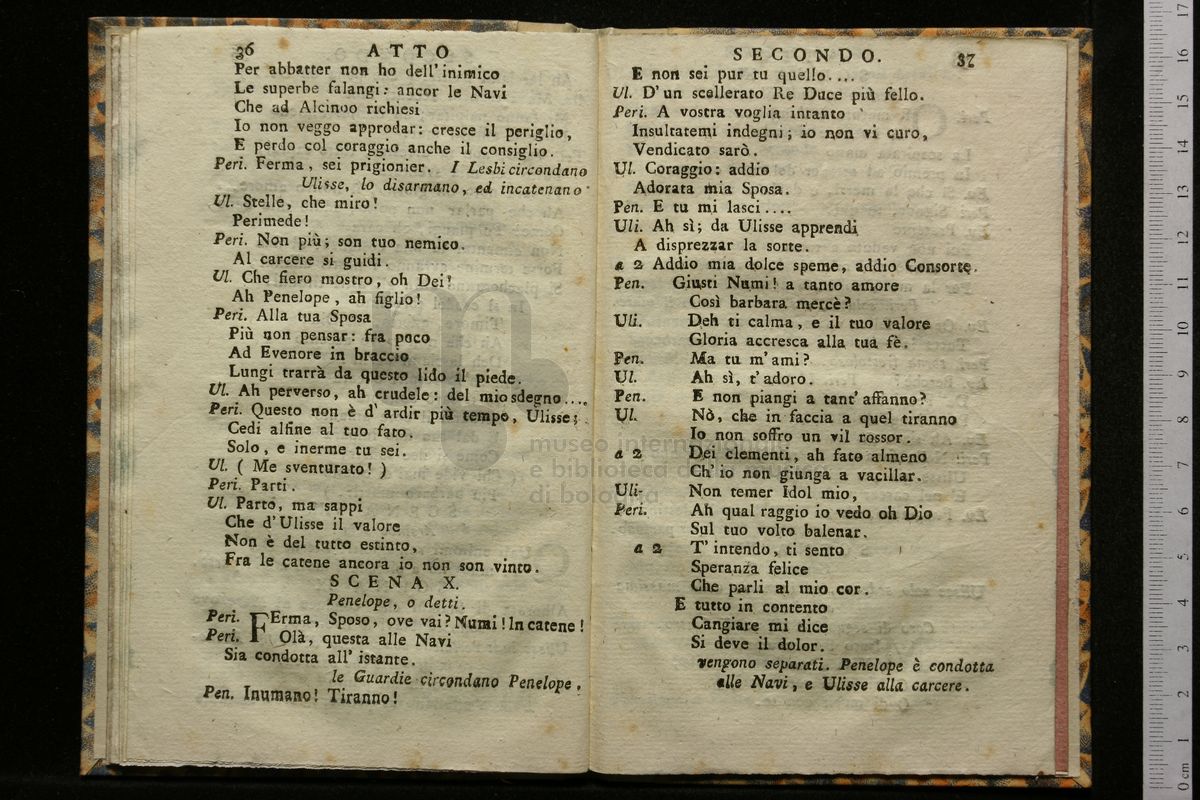 36 ATTO
Per abbatter non ho dell' inimico
Le superbe falangi: ancor le Navi
Che ad Alcinoo richiesi
Io non veggo approdar: cresce il periglio,
E perdo col coraggio anche il consiglio.
Peri. Ferma, sei prigionier. I Lesbi circondano
Ulisse, lo disarmano, ed incatenano
Ul. Stelle, che miro!
Perimede!
Peri. Non più; son tuo nemico.
Al carcere si guidi.
Ul. Che fiero mostro, oh Dei!
Ah Penelope, ah figlio!
Peri. Alla tua Sposa
Più non pensar: fra poco
Ad Evenore in braccio
Lungi trarrà da questo lido il piede.
Ul. Ah perverso, ah crudele: del mio sdegno....
Peri. Questo non è d' ardir più tempo, Ulisse;
Cedi alfine al tuo fato.
Solo, e inerme tu sei.
Ul. ( Me sventurato! )
Peri. Parti.
Ul. Parto, ma sappi
Che d' Ulisse il valore
Non è del tutto estinto,
Fra le catene ancora io non son vinto.
SCENA X.
Penelope, o detti.
Peri. FErma, Sposo, ove vai? Numi! In catene!
Peri. Olà, questa alle Navi
Sia condotta all' istante.
le Guardie circondano Penelope.
Pen. Inumano! Tiranno!
SECONDO. 37
E non sei pur tu quello....
Ul. D' un scellerato Re Duce più fello.
Peri. A vostra voglia intanto
Insultatemi indegni; io non vi curo,
Vendicato sarò.
Ul. Coraggio: addio
Adorata mia Sposa.
Pen. E tu mi lasci....
Uli. Ah sì; da Ulisse apprendi
A disprezzar la sorte.
a 2 Addio mia dolce speme, addio Consorte.
Pen. Giusti Numi! a tanto amore
Così barbara mercè?
Uli. Deh ti calma, e il tuo valore
Gloria accresca alla tua fè.
Pen. Ma tu m' ami?
Ul. Ah sì, t' adoro.
Pen. E non piangi a tant' affanno?
Ul. Nò, che in faccia a quel tiranno
Io non soffro un vil rossor.
a 2 Dei clementi, ah fato almeno
Ch' io non giunga a vacillar.
Uli- Non temer Idol mio,
Peri. Ah qual raggio io vedo oh Dio
Sul tuo volto balenar.
a 2 T' intendo, ti sento
Speranza felice
Che parli al mio cor.
E tutto in contento
Cangiare mi dice
Si deve il dolor.
vengono separati. Penelope è condotta
alle Navi, e Ulisse alla carcere.
museo internazionale
e biblioteca d
di bologna
0 cm 1 2 3 4 5 6 7 8 9 10 11 12 13 14 15 16 17